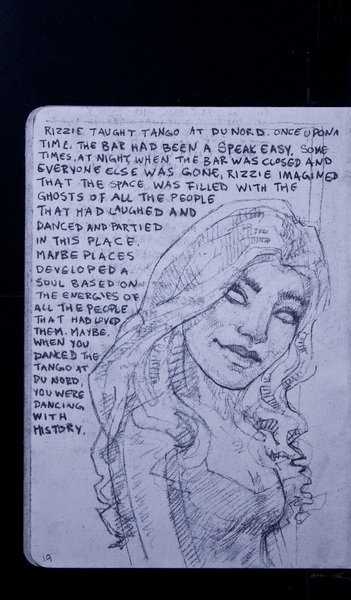 RIZZIE TAUGHT TANGO AT DU NORD. ONCE UPON A
TIME, THE BAR HAD BEEN A SPEAK EASY. SOME
TIMES, AT NIGHT, WHEN THE BAR WAS CLOSED AND
EVERYONE ELSE WAS GONE, RIZZIE IMAGINED
THAT THE SPACE WAS FILLED WITH THE
GHOSTS OF ALL THE PEOPLE
THAT HAD LAUGHED AND
DANCED AND PARTIED
IN THIS PLACE.
MAYBE PLACES
DEVELOPED A
SOUL BASED ON
THE ENERGIES OF
ALL THE PEOPLE
THAT HAD LOVED
THEM. MAYBE,
WHEN YOU
DANCED THE
TANGO AT
DU NORD,
YOU WERE
DANCING
WITH
HISTORY.
19